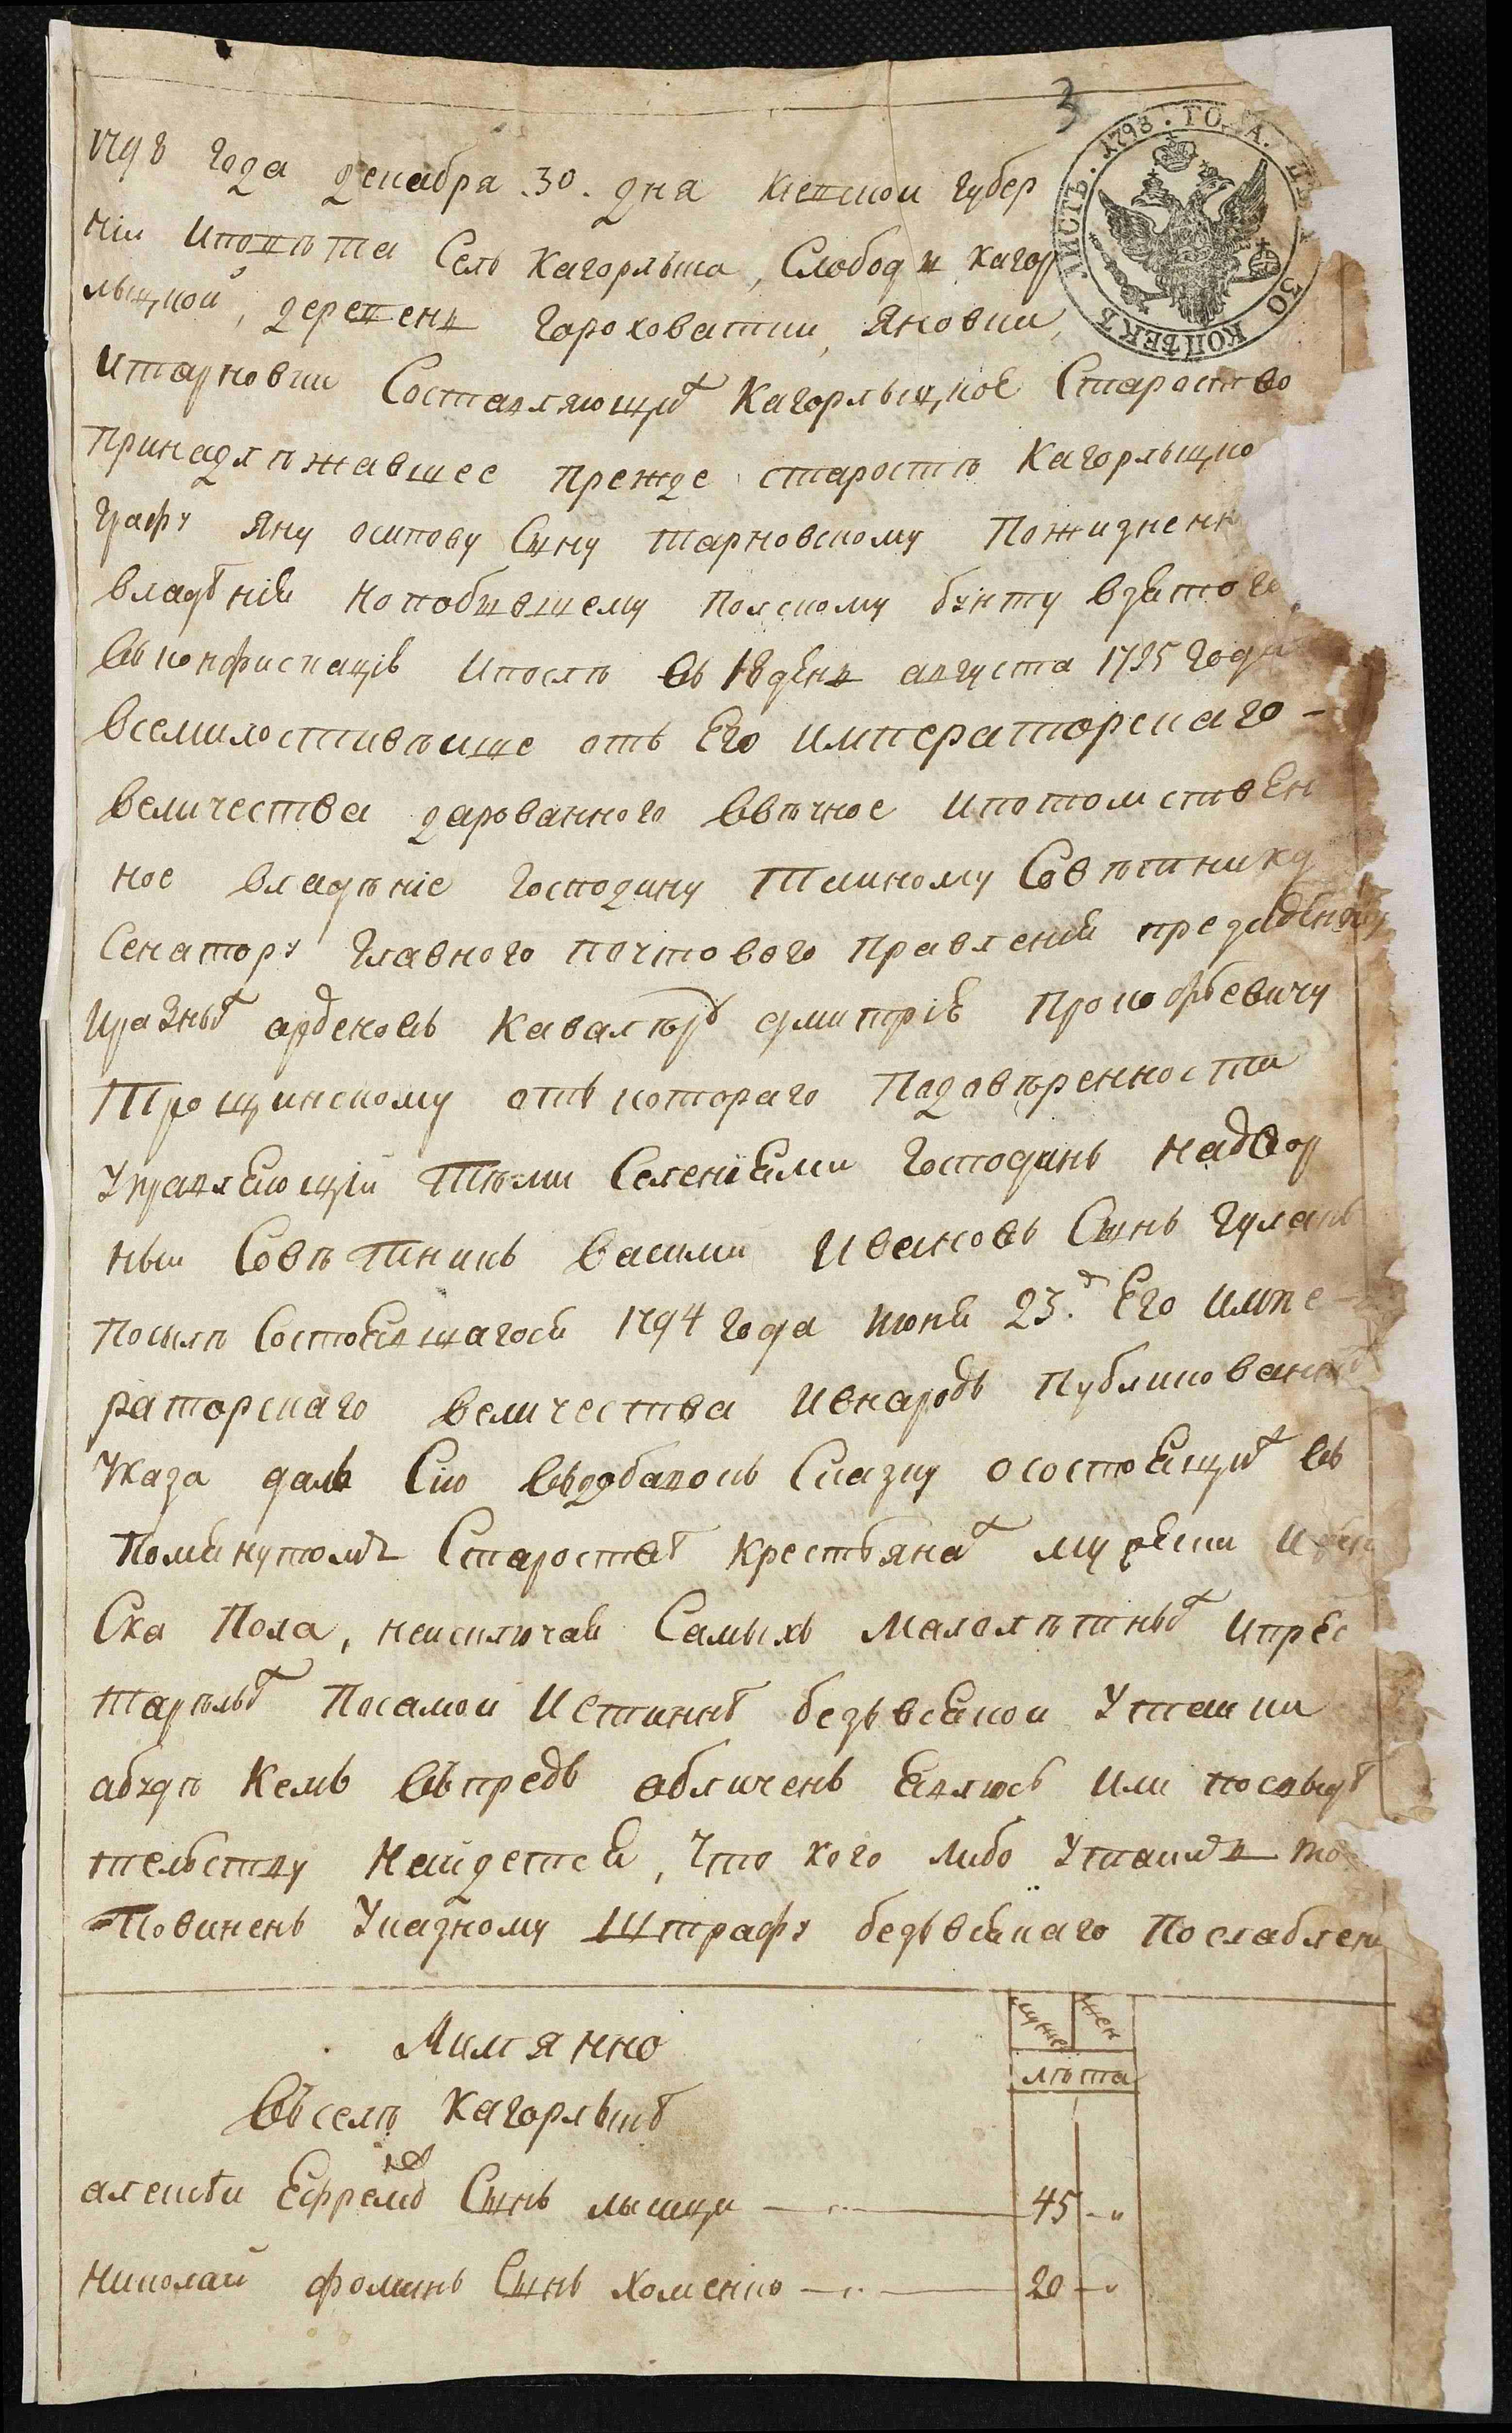 3
ЛИСТЪ. 1798. ГОДА. ЦѢНА 30 КОПѢЕКЪ
1798 года декабря .30. дня Киевской губер
ніи Уповѣта Селъ Кагорлыка, Слободы Кагор
лыцкой, деревень Гороховатки, Яновки,
Итарновки Составляющихъ Кагорлыцкое Староство
принадлѣжавшее прежде старостѣ Кагорлыцко
графу Яну осипову Сыну Тарновскому Пожизнен
владѣнія Нопобывшему Полскому бунту взятого
въконфискацію Ипослѣ въ 18 день августа 1795 года
Всемилостивѣише отъ Его Императорскаго -
величества дарованного Ввѣчное Ипотомствен
ное владѣніе господину Тайному Совѣтнику
Сенатору Главного почтового правления президенту
Иразныхъ орденовъ Кавалѣру дмитрію Прокофьевичу
Трощинскому отъ котораго Подовѣренности
Управляющій Тѣми Селеніями Господинъ Надвор
ныи Совѣтникъ Василии Ивановъ Сынъ Гулакъ
Посилѣ Состоявшагося 1794 года июня 23.д Его Импе-
раторскаго величества Ивнародъ Публикованнаго
Указа далъ Сию Сказку осостоящихъ въ
Помянутомъ Староствѣ крестьянахъ мужески Ижен
Ска Пола, неисключая Самыхъ Малолѣтныхъ Ипрес
тарѣлыхъ Посамой Истиннѣ безъвсякой Утайки
абудѣ Кемъ въпредь обличенъ явлюсь Или посвидѣ
тельству Найдется, Что кого либо Утаилъ то
Повиненъ Указному Штрафу безъвсякаго Послаблени
муже жен
Аимянно
лѣта
Въселѣ Кагорлыкѣ
алексѣи Ефремовъ Сынъ лысици 45 - "
Николаи фоминъ Сынъ Хоменко 20 - "